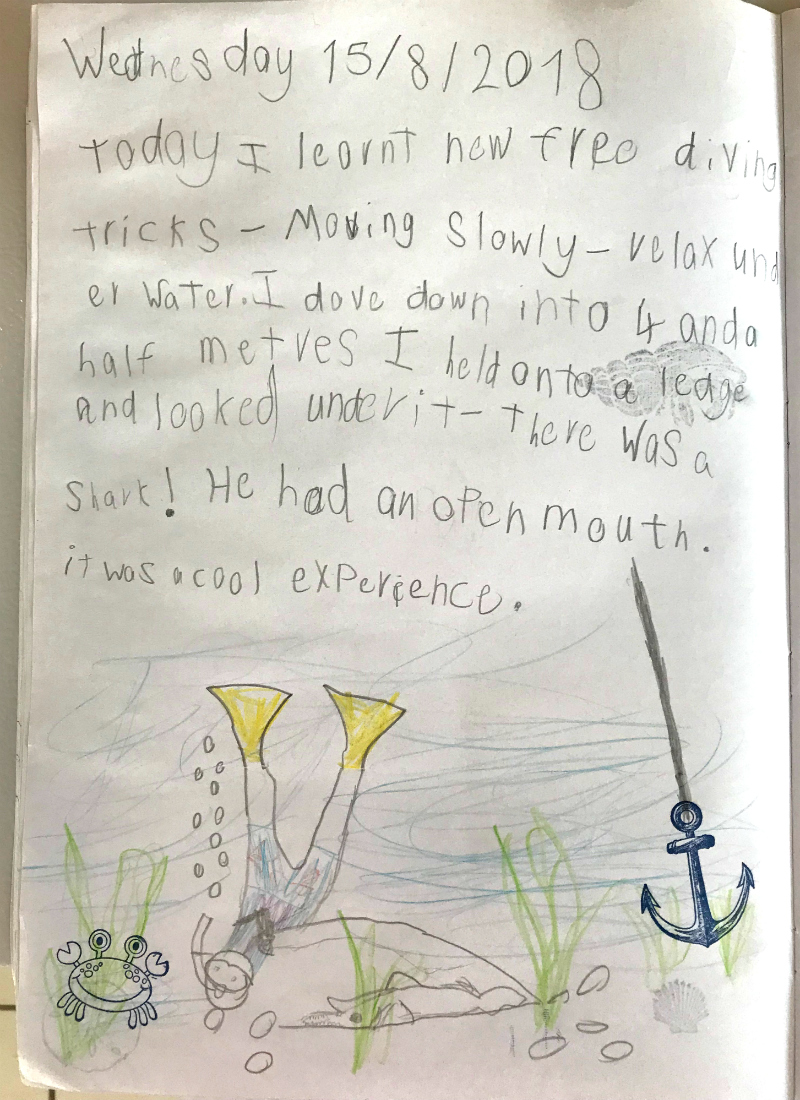 Wednesday 15/8/2018
today I learnt new free diving
tricks - Moving slowly - relax und
er water. I dove down into 4 and a
half metres I held onto a ledge
and looked under it - there was a
shark! He had an open mouth.
it was a cool experience.